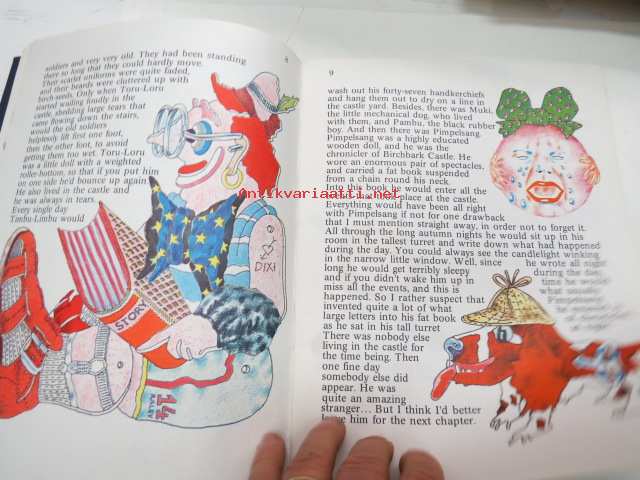 8
soldiers and very very old They had been standing
there so long that they could hardly move.
Their scarlet uniforms were quite faded,
and their beards were cluttered up with
birch-seeds. Only when Toru-Loru
started wailing findly in the
castle, shedding large tears that
came flowing down the stairs,
would the old soldiers
helplessly lift first one foot,
then the other foot, to avoid
getting them too wet. Toru-Loru
was a little doll with a weighted
roller-bottom, so that if you put him
on one side he'd bounce up again
He also lived in the castle and
he was always in tears.
Every single day
Timbu-Limbu would
DIXI
STOR
14
9
wash out his forty-seven handkerchiefs
and hang them out to dry on a line in
the castle yard. Besides, there was Muki,
the little mechanical dog, who lived
with them, and Pambu, the black rubber
boy. And then there was Pimpelsang.
Pimpelsang was a highly educated
wooden doll, and he was the
chronicler of Birchbark Castle. He
wore an enormous pair of spectacles,
and carried a fat book suspended
from a chain round his neck.
Into this book he would enter all the
place at the castle.
Everything would have been all right
with Pimpelsang if not for one drawback
that I must mention straight away, in order not to forget it.
All through the long autumn nights he would sit up in his
room in the tallest turret and write down what had happened
during the day. You could always see the candlelight winking
in the narrow little window. Well, since he wrote all night
long he would get terribly sleepy during the day,
and if you didn't wake him up in time he would
miss all the events, and this is what usually
happened. So I rather suspect that Pimpelsang
invented quite a lot of what he
large letters into his fat book
as he sat in his tall turret
There was nobody else
living in the castle for
the time being. Then
one fine day
somebody else did
appear. He was
quite an amazing
stranger... But I think I'd better
leave him for the next chapter.
antikvariaatti.net